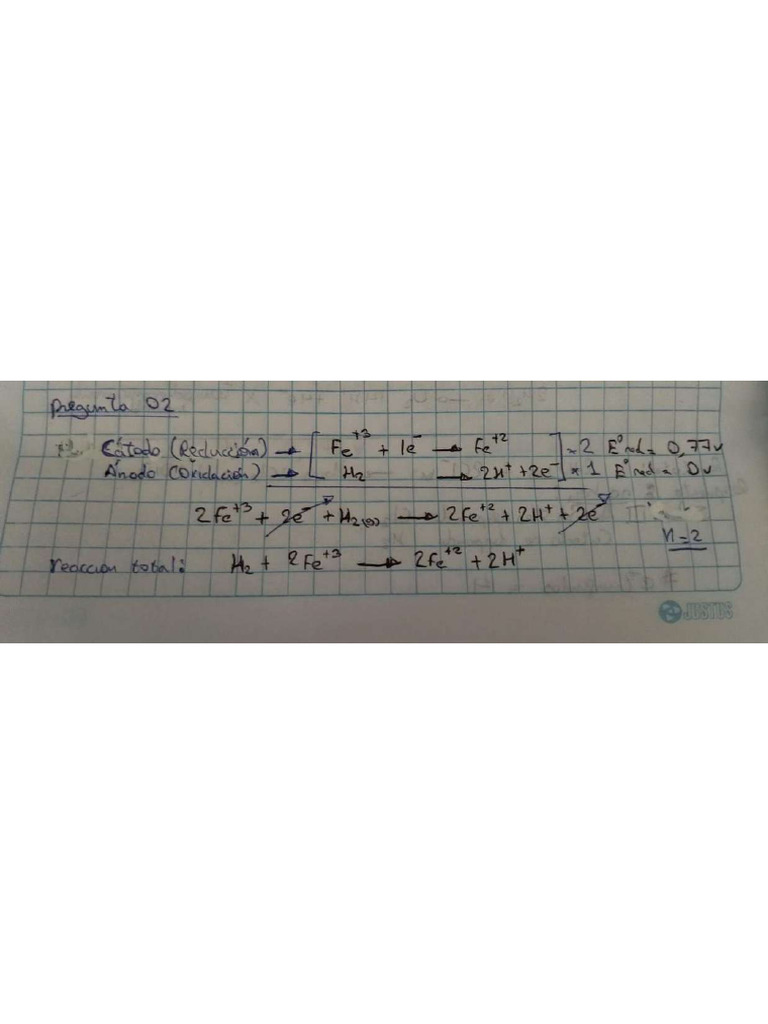 Pregunta 02
Cátodo (Reducción) → [ Fe⁺³ + 1e⁻ → Fe⁺² ] × 2 E° red = 0,77v
Ánodo (Oxidación) → [ H₂ → 2H⁺ + 2e⁻ ] × 1 E° red = 0v
2Fe⁺³ + 2e⁻ + H₂₍g₎ → 2Fe⁺² + 2H⁺ + 2e⁻
n=2
reacción total: H₂ + 2Fe⁺³ → 2Fe⁺² + 2H⁺
JUSTUS